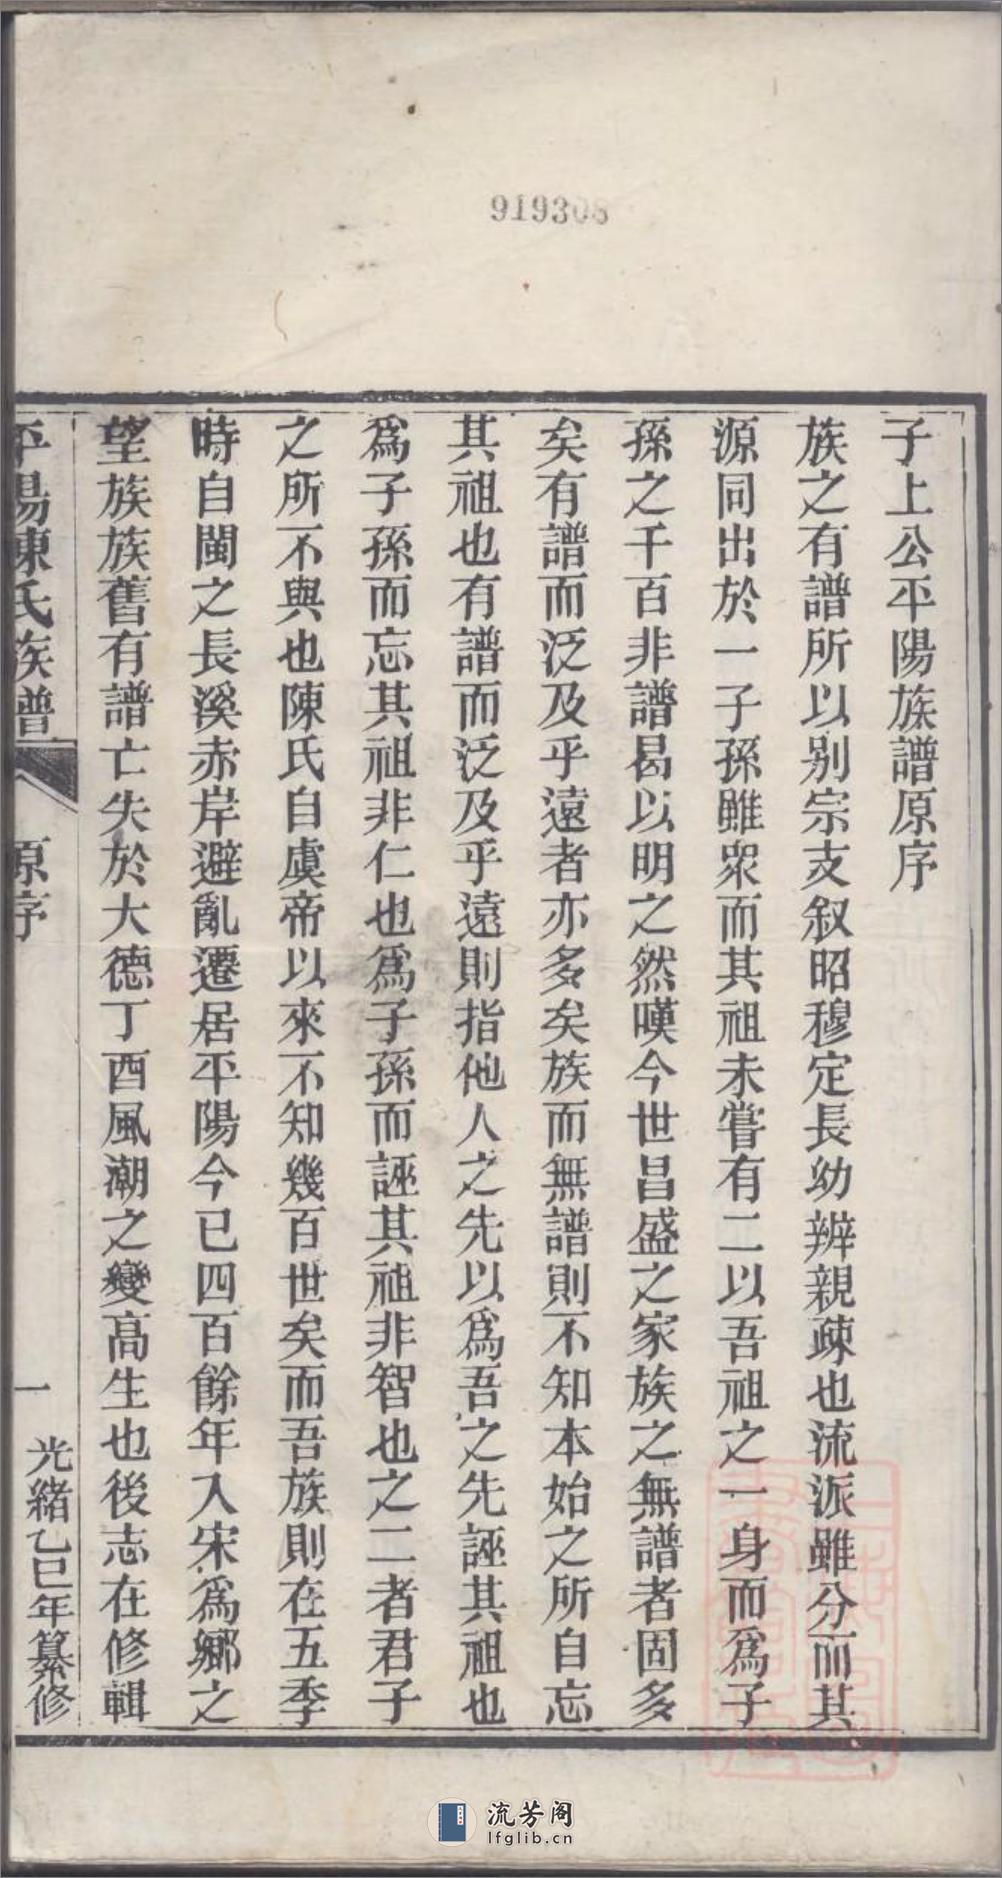 919308
子上公平陽族譜原序
族之有譜所以别宗支叙昭穆定長幼辨親疎也流派雖分而其
源同出於一子孫雖衆而其祖未嘗有二以吾祖之一身而爲子
孫之千百非譜曷以明之然嘆今世昌盛之家族之無譜者固多
矣有譜而泛及乎遠者亦多矣族而無譜則不知本始之所自忘
其祖也有譜而泛及乎遠則指他人之先以爲吾之先誣其祖也
爲子孫而忘其祖非仁也爲子孫而誣其祖非智也之二者君子
之所不與也陳氏自虞帝以來不知幾百世矣而吾族則在五季
時自閩之長溪赤岸避亂遷居平陽今已四百餘年入宋爲鄉之
望族族舊有譜亡失於大德丁酉風潮之變高生也後志在修輯
平陽陳氏族譜 原序 一 光緒乙巳年纂修
流芳阁
lfglib.cn